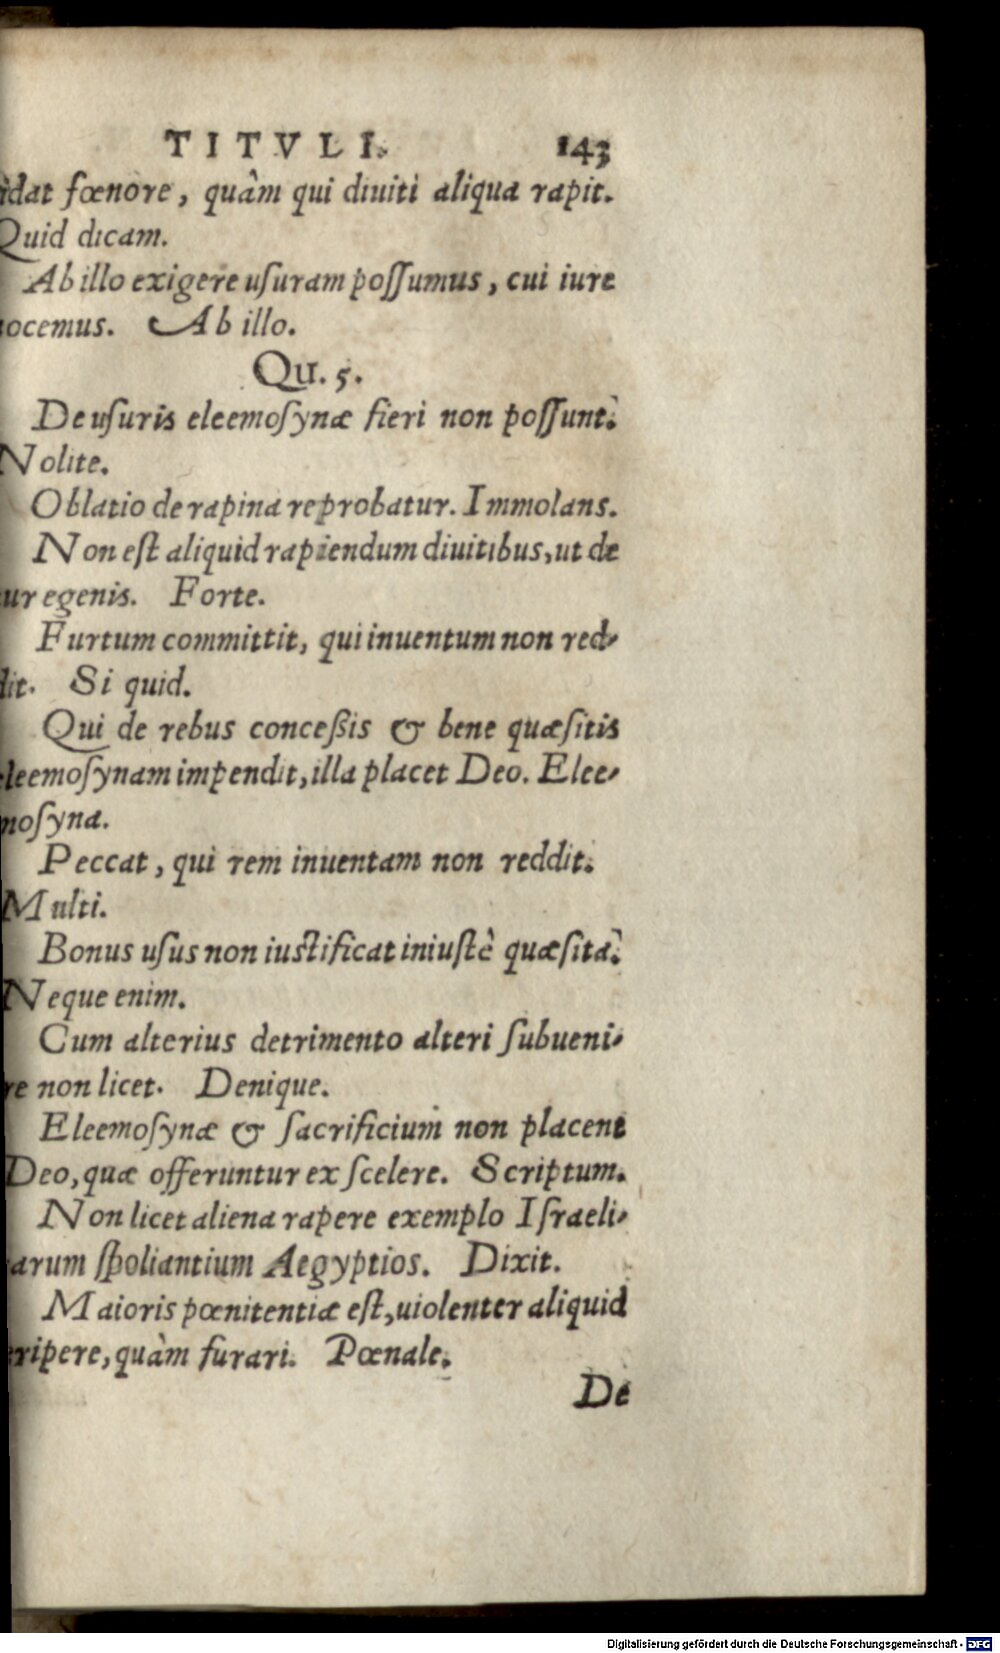 TITVLI. 143
idat fœnore, quàm qui diuiti aliqua rapit.
Quid dicam.
Ab illo exigere uſuram poſſumus, cui iure
nocemus. Ab illo.
Qu. 5.
De uſuris eleemoſynæ fieri non poſſunt.
Nolite.
Oblatio de rapina reprobatur. Immolans.
Non eſt aliquid rapiendum diuitibus, ut de
ur egenis. Forte.
Furtum committit, qui inuentum non red-
dit. Si quid.
Qui de rebus conceßis & bene quæſitis
eleemoſynam impendit, illa placet Deo. Elee-
moſyna.
Peccat, qui rem inuentam non reddit.
Multi.
Bonus uſus non iuſtificat iniuſtè quæſita.
Neque enim.
Cum alterius detrimento alteri ſubueni-
re non licet. Denique.
Eleemoſynæ & ſacrificium non placent
Deo, quæ offeruntur ex ſcelere. Scriptum.
Non licet aliena rapere exemplo Iſraeli-
arum ſpoliantium Aegyptios. Dixit.
Maioris pœnitentiæ eſt, uiolenter aliquid
eripere, quàm furari. Pœnale.
De
Digitalisierung gefördert durch die Deutsche Forschungsgemeinschaft - DFG